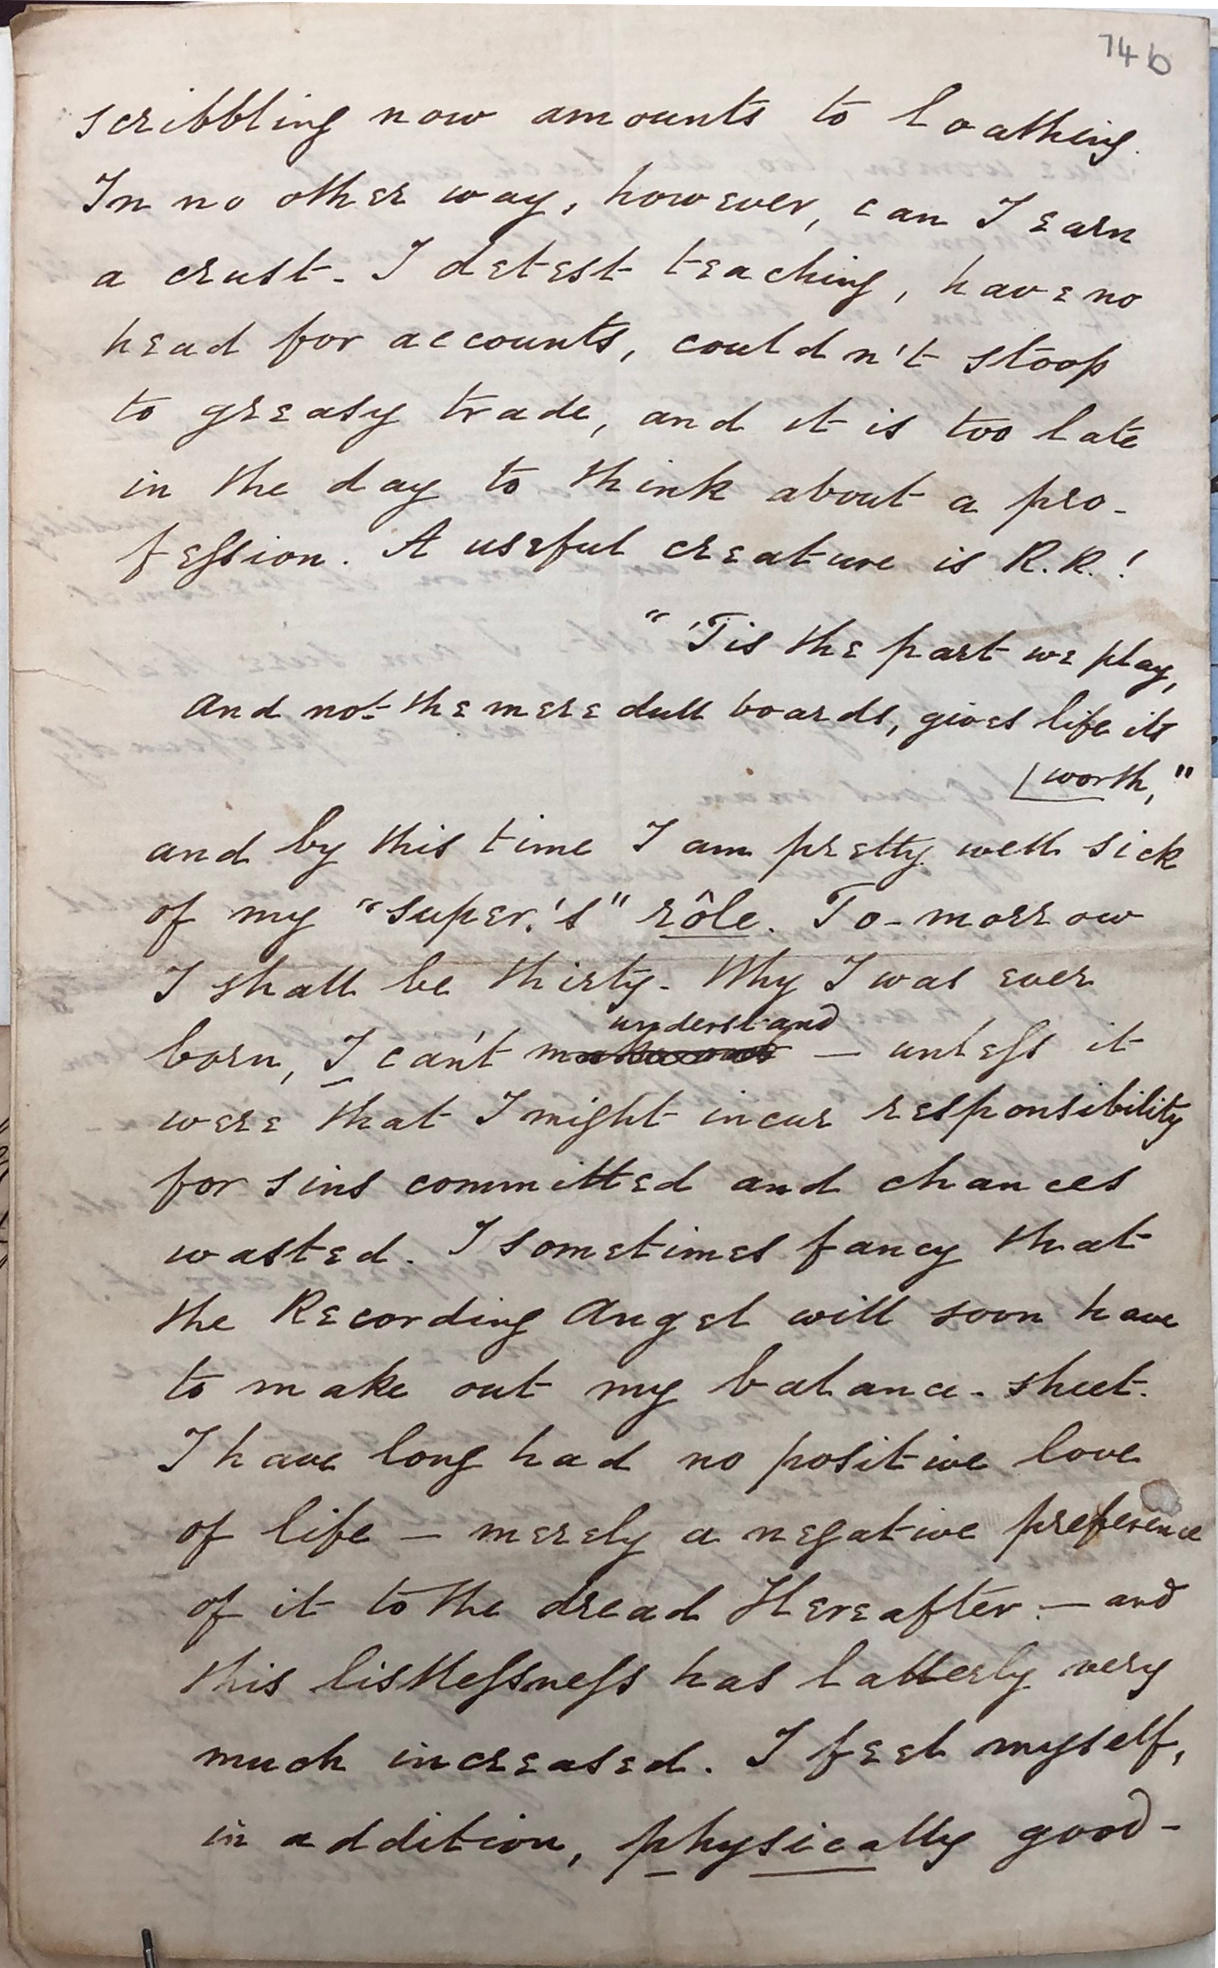 74b
scribbling now amounts to loathing.
In no other way, however, can I earn
a crust. I detest teaching, have no
head for accounts, couldn't stoop
to greasy trade, and it is too late
in the day to think about a pro-
feſsion. A useful creature is R.R.!
"'Tis the part we play,
And not the mere dull boards, gives life its
worth,"
and by this time I am pretty well sick
of my "super.'s" rôle. To-morrow
I shall be thirty. Why I was ever
understand
born, I can't make out — unleſs it
were that I might incur responsibility
for sins committed and chances
wasted. I sometimes fancy that
the Recording Angel will soon have
to make out my balance-sheet.
I have long had no positive love
of life — merely a negative preference
of it to the dread Hereafter — and
this listleſsneſs has latterly very
much increased. I feel myself,
in addition, physically good-